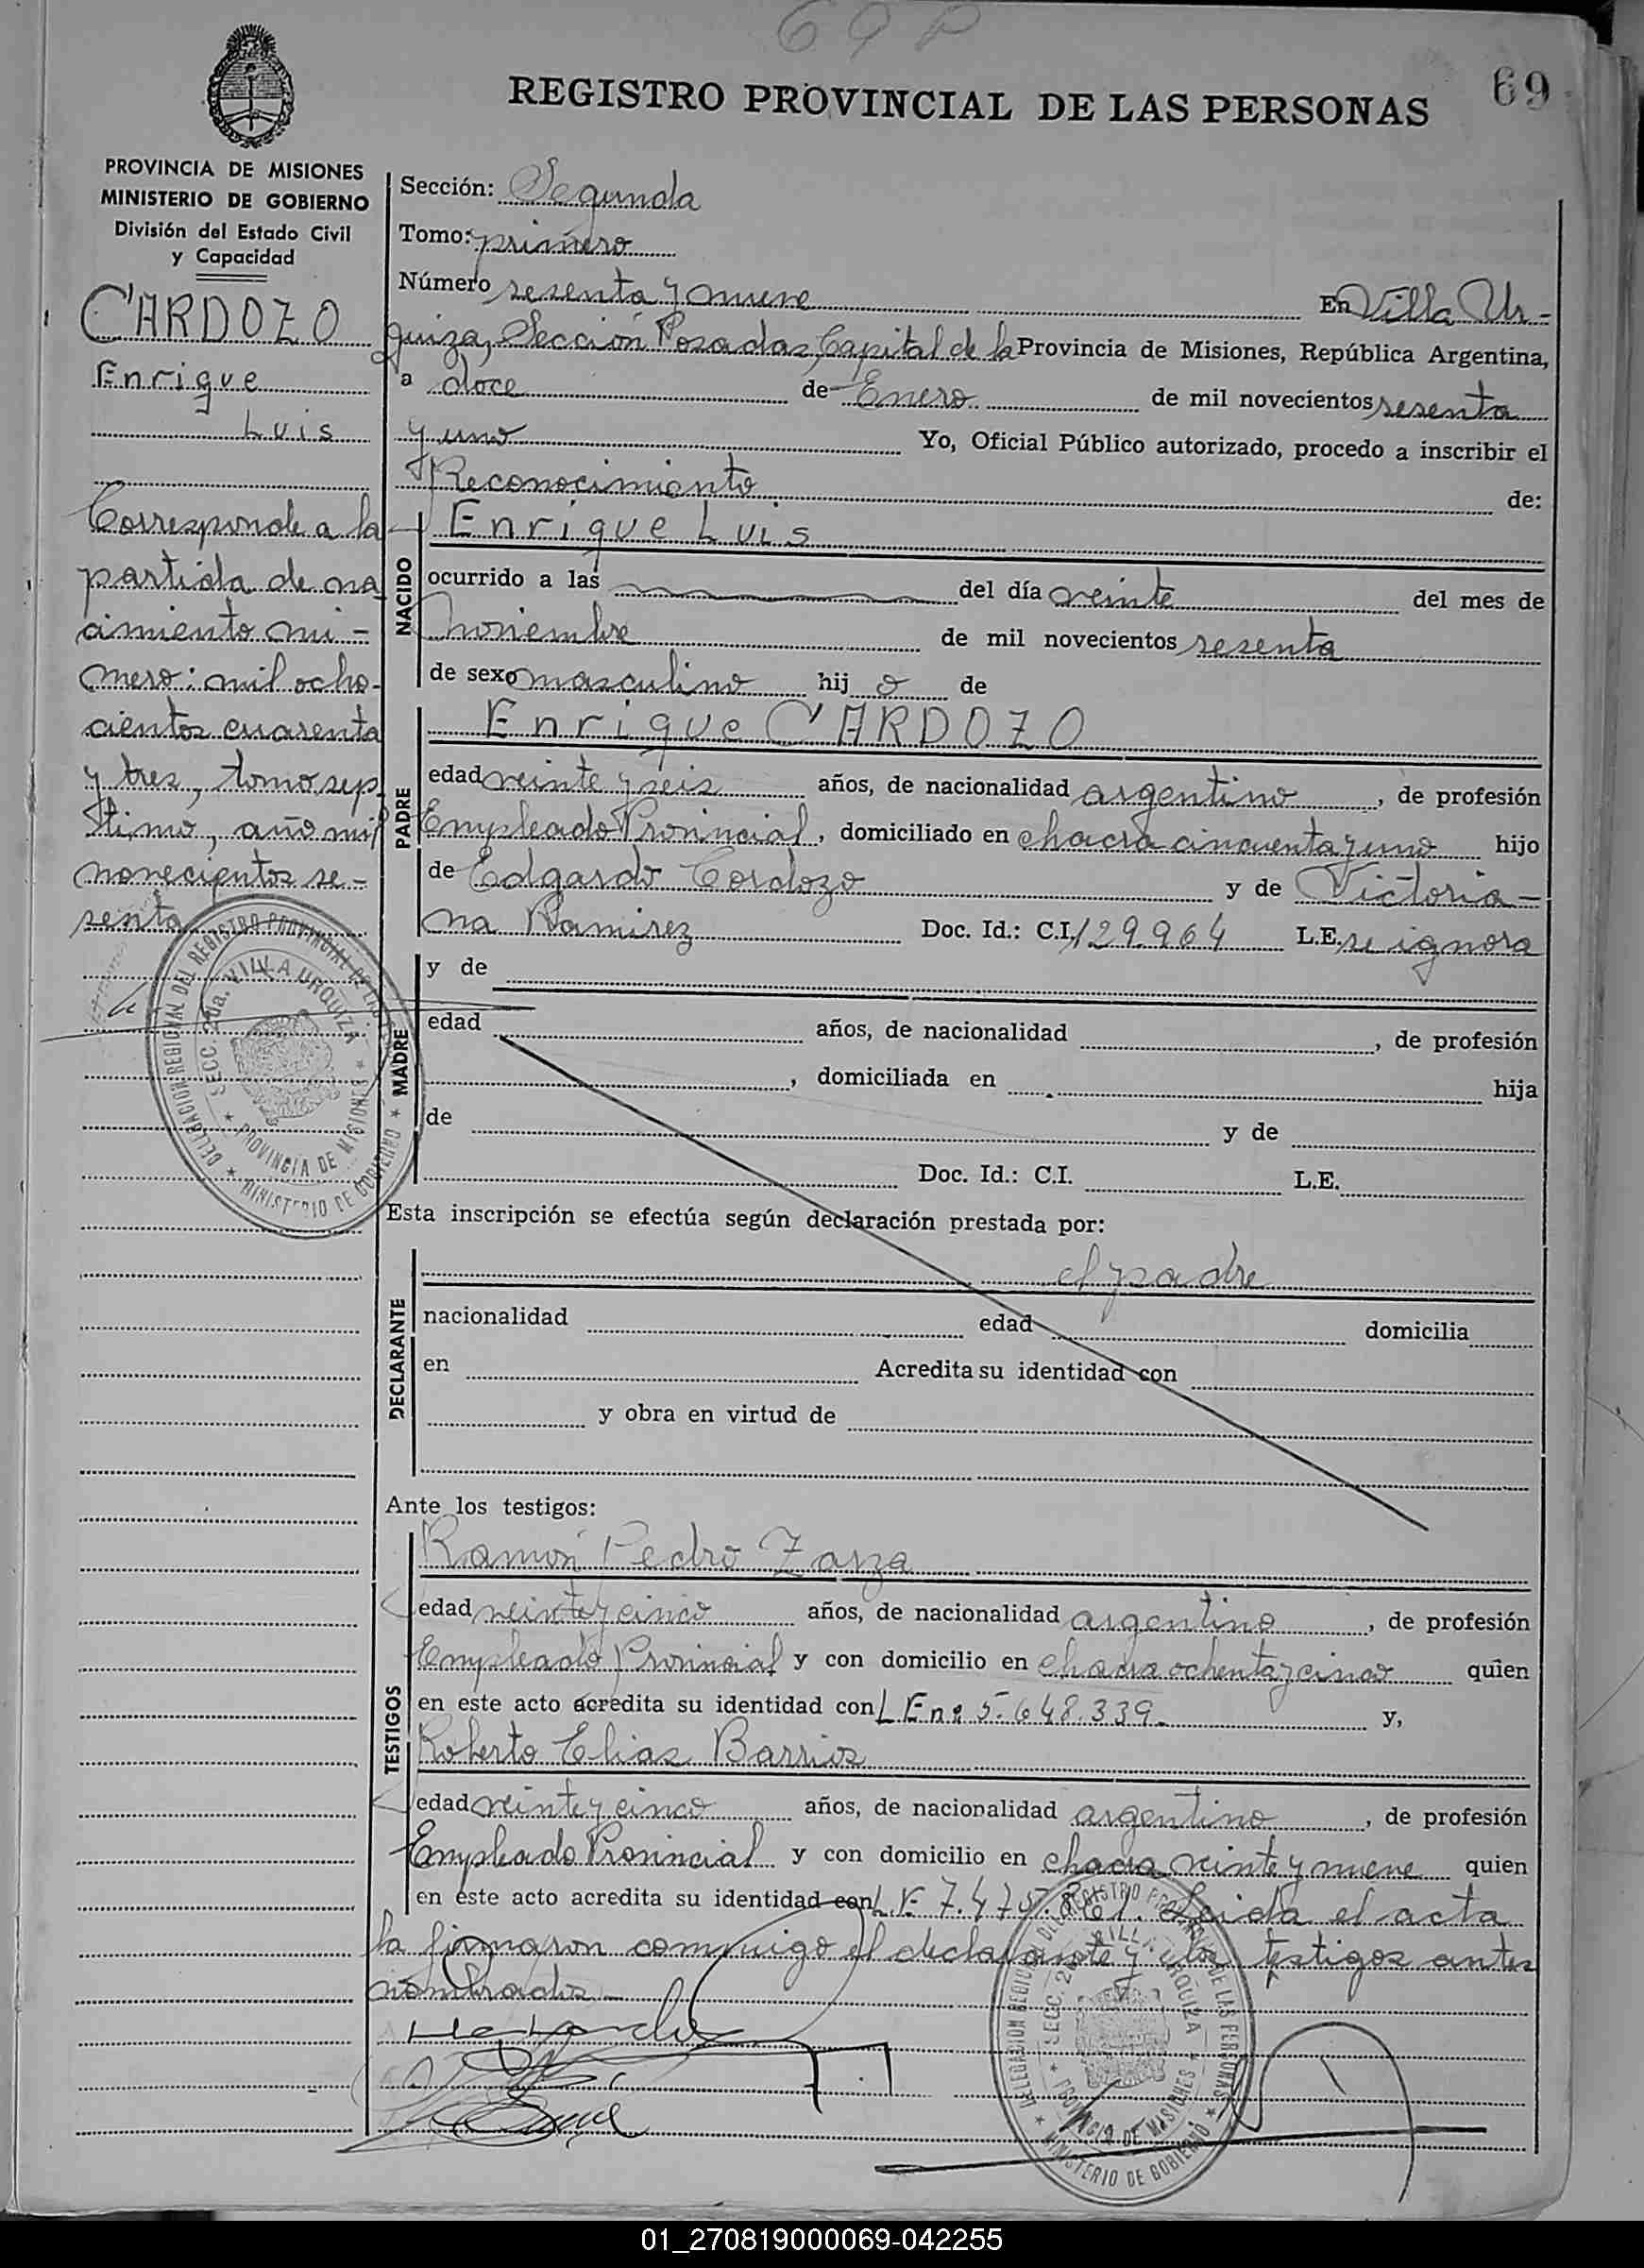 69 P
REGISTRO PROVINCIAL DE LAS PERSONAS 69
PROVINCIA DE MISIONES
MINISTERIO DE GOBIERNO
División del Estado Civil
y Capacidad
CARDOZO
Enrique
Luis
Corresponde a la
partida de na
cimiento nú-
mero: mil ocho-
cientos cuarenta
y tres, tomo sep
timo, año mil
novecientos se-
senta
DELEGACION REGIONAL DEL REGISTRO PROVINCIAL DE LAS
SECC. 2da. VILLA URQUIZA
PROVINCIA DE MISIONES
MINISTERIO DE GOBIERNO
Sección: Segunda
Tomo: primero
Número sesenta y nueve En Villa Ur-
quiza, Sección Posadas, Capital de la Provincia de Misiones, República Argentina,
a doce de Enero de mil novecientos sesenta
y uno Yo, Oficial Público autorizado, procedo a inscribir el
Reconocimiento de:
NACIDO
Enrique Luis
ocurrido a las del día veinte del mes de
noviembre de mil novecientos sesenta
de sexo masculino hij o de
PADRE
Enrique CARDOZO
edad veinte y seis años, de nacionalidad argentino, de profesión
Empleado Provincial, domiciliado en chacra cincuenta y uno hijo
de Edgardo Cardozo y de Victoria-
na Ramirez Doc. Id.: C.I. 129.964 L.E. se ignora
MADRE
y de
edad años, de nacionalidad , de profesión
, domiciliada en hija
de y de
Doc. Id.: C.I. L.E.
Esta inscripción se efectúa según declaración prestada por:
DECLARANTE
el padre
nacionalidad edad domicilia
en Acredita su identidad con
y obra en virtud de
Ante los testigos:
TESTIGOS
Ramón Pedro Zarza
edad veinte y cinco años, de nacionalidad argentino, de profesión
Empleado Provincial y con domicilio en chacra ochenta y cinco quien
en este acto acredita su identidad con L En: 5.648.339.- y,
Roberto Elias Barrios
edad veinte y cinco años, de nacionalidad argentino, de profesión
Empleado Provincial y con domicilio en chacra veinte y nueve quien
en este acto acredita su identidad con L.E 7.475. Leida el acta
la firmaron conmigo el declarante y los testigos antes
nombrados.-
DELEGACION REGIONAL DEL REGISTRO PROVINCIAL DE LAS PERSONAS
SECC. 2da. VILLA URQUIZA
PROVINCIA DE MISIONES
MINISTERIO DE GOBIERNO
01_270819000069-042255